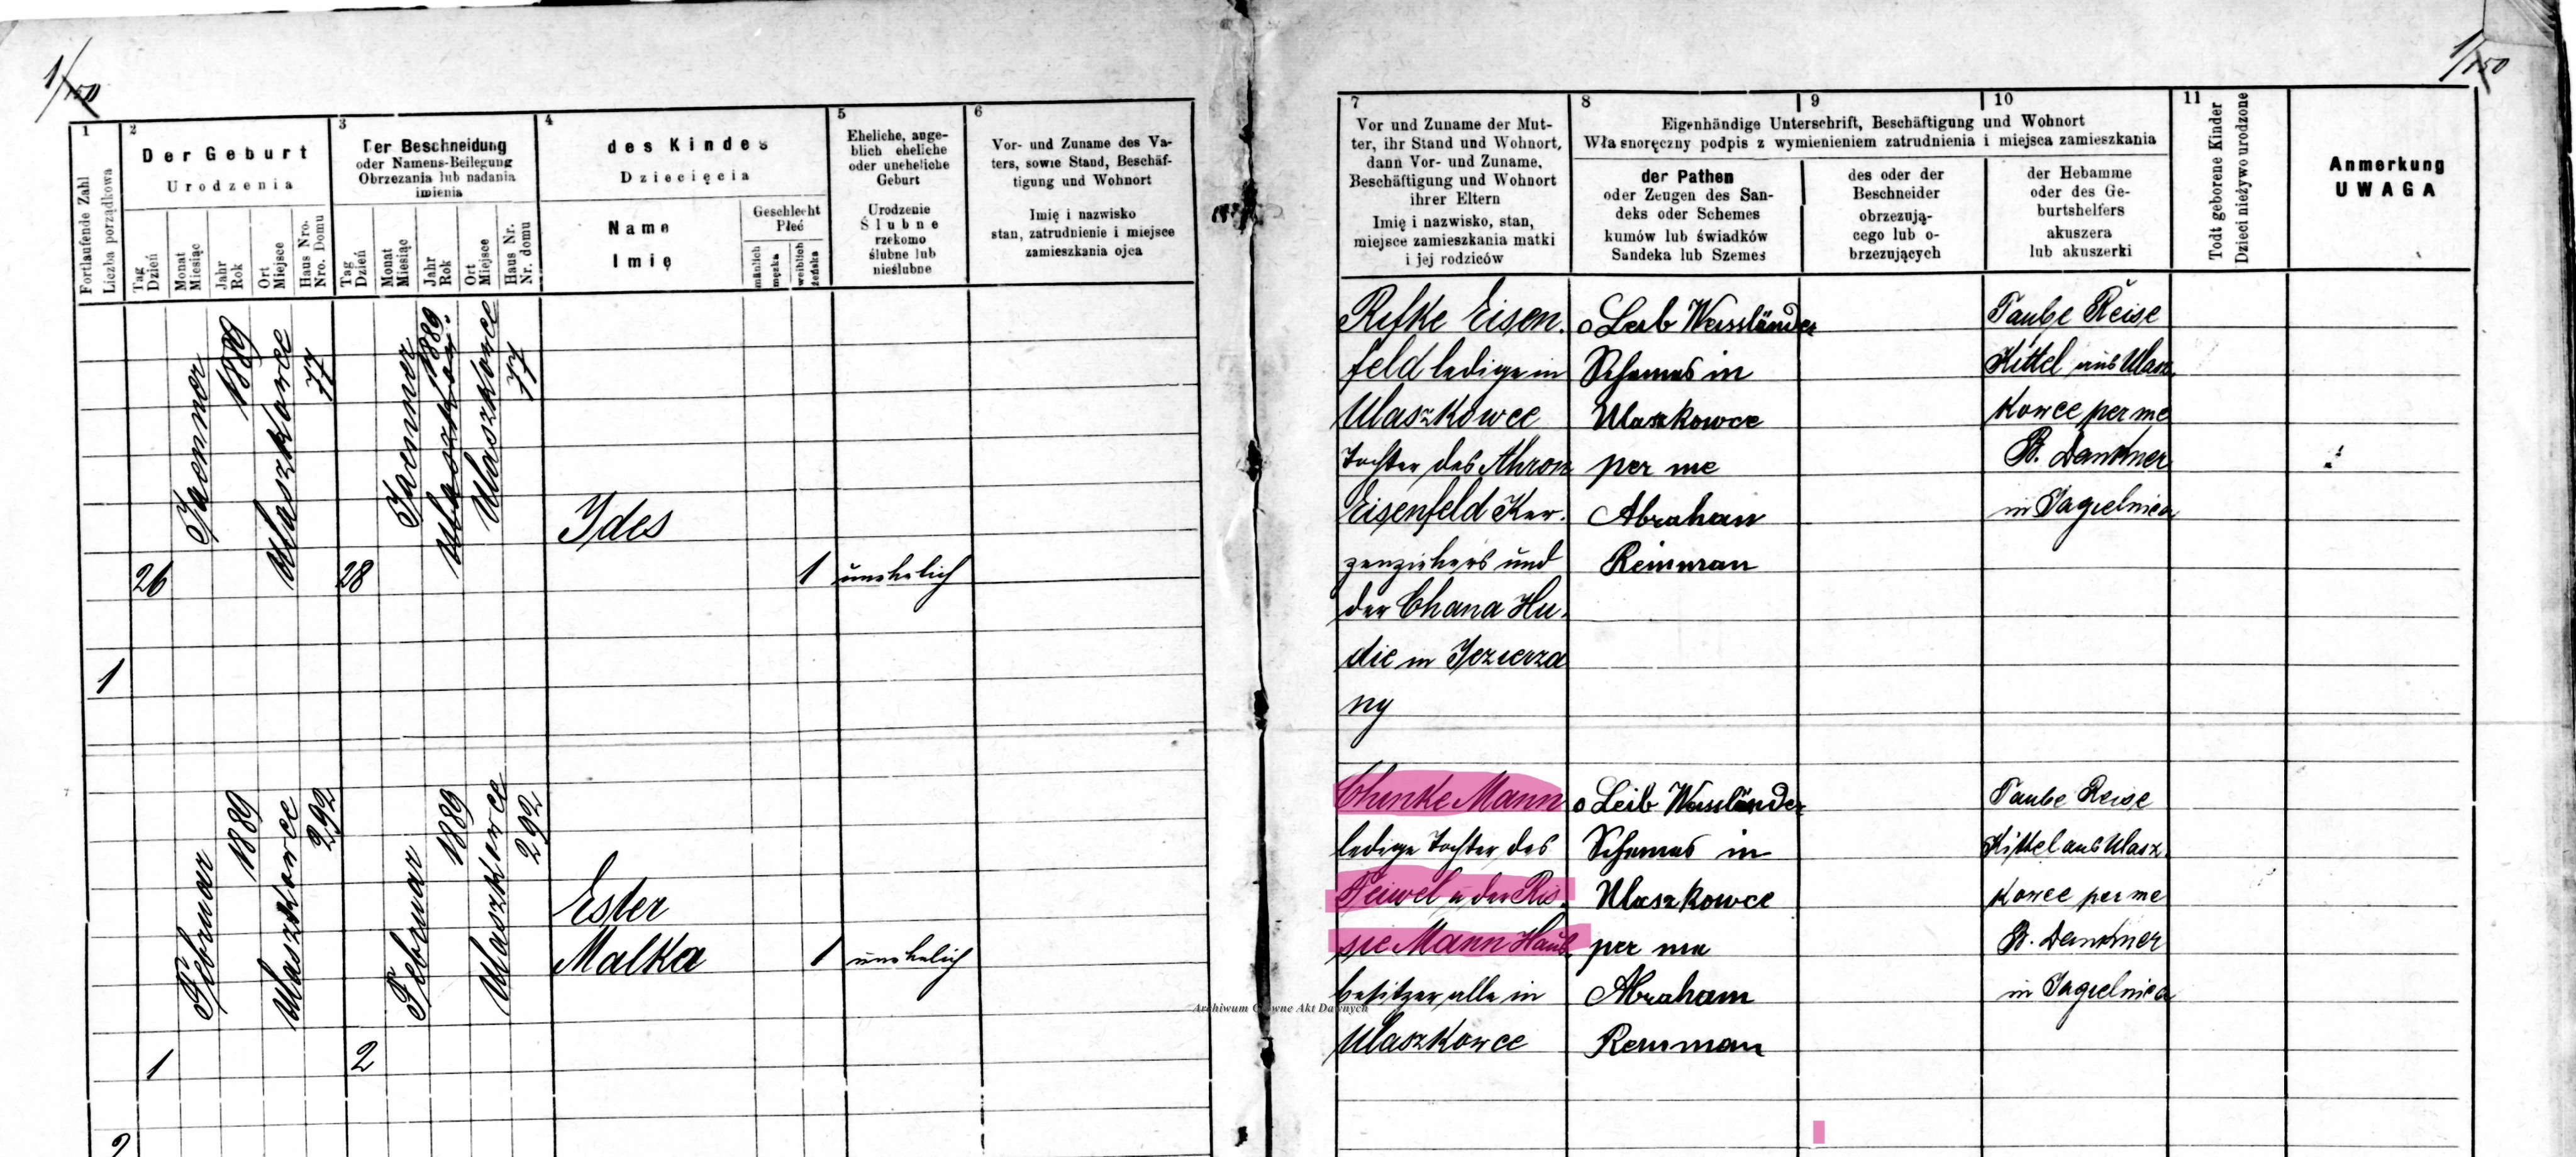 1/150
1/150
1
Fortlaufende Zahl
Liczba porządkowa
2
Der Geburt
Urodzenia
Tag
Dzień
Monat
Miesiąc
Jahr
Rok
Ort
Miejsce
Haus Nro.
Nro. Domu
3
Der Beschneidung
oder Namens-Beilegung
Obrzezania lub nadania
imienia
Tag
Dzień
Monat
Miesiąc
Jahr
Rok
Ort
Miejsce
Haus Nr.
Nr. domu
4
des Kindes
Dziecięcia
Name
Imię
Geschlecht
Płeć
mänlich
męzka
weiblich
żeńska
5
Eheliche, ange-
blich eheliche
oder uneheliche
Geburt
Urodzenie
Ślubne
rzekomo
ślubne lub
nieślubne
6
Vor- und Zuname des Va-
ters, sowie Stand, Beschäf-
tigung und Wohnort
Imię i nazwisko
stan, zatrudnienie i miejsce
zamieszkania ojca
7
Vor und Zuname der Mut-
ter, ihr Stand und Wohnort,
dann Vor- und Zuname,
Beschäftigung und Wohnort
ihrer Eltern
Imię i nazwisko, stan,
miejsce zamieszkania matki
i jej rodziców
8
9
10
Eigenhändige Unterschrift, Beschäftigung und Wohnort
Własnoręczny podpis z wymienieniem zatrudnienia i miejsca zamieszkania
der Pathen
oder Zeugen des San-
deks oder Schemes
kumów lub świadków
Sandeka lub Szemes
des oder der
Beschneider
obrzezują-
cego lub o-
brzezujących
der Hebamme
oder des Ge-
burtshelfers
akuszera
lub akuszerki
11
Todt geborene Kinder
Dzieci nieżywo urodzone
Anmerkung
UWAGA
1
26
Jaenner
1889
Ulaszkowce
77
28
Jaenner
1889
Ulaszkow.
Ulaszkowce
77
Ides
1
unehelich
Rifke Eisen.
feld ledige in
Ulaszkowce
Tochter des Ahron
Eisenfeld Ker.
zenziehers und
der Chana Hu.
die in Jezierza
ny
o Leib Weissländer
Schames in
Ulaszkowce
per me
Abraham
Reinman
Taube Reise
Kittel aus Ulasz.
kowce per me
B. Dankner
in Jagielnica
2
1
Februar
1889
Ulaszkowce
292
2
Februar
1889
Ulaszkowce
292
Ester
Malka
1
unehelich
Chenke Mann
ledige Tochter des
Feiwel u der Ris.
sie Mann Haus.
besitzer alle in
Ulaszkowce
o Leib Weissländer
Schames in
Ulaszkowce
per me
Abraham
Reinman
Taube Reise
Kittel aus Ulasz.
kowce per me
B. Dankner
in Jagielnica
Archiwum Główne Akt Dawnych